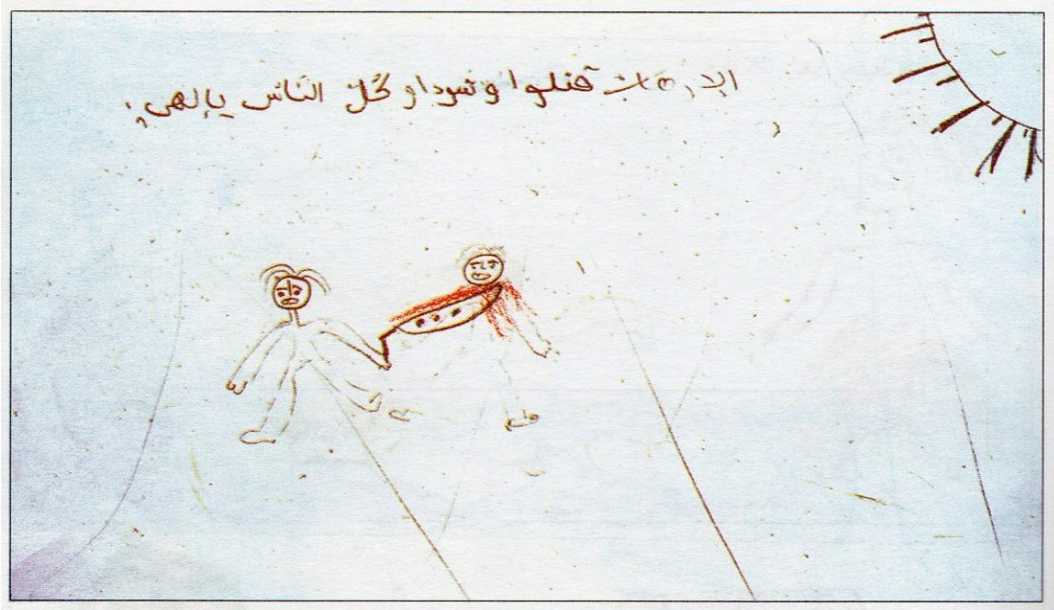 الإرهاب قتلوا وشوداو كُلّ النّاس يإلهي؛